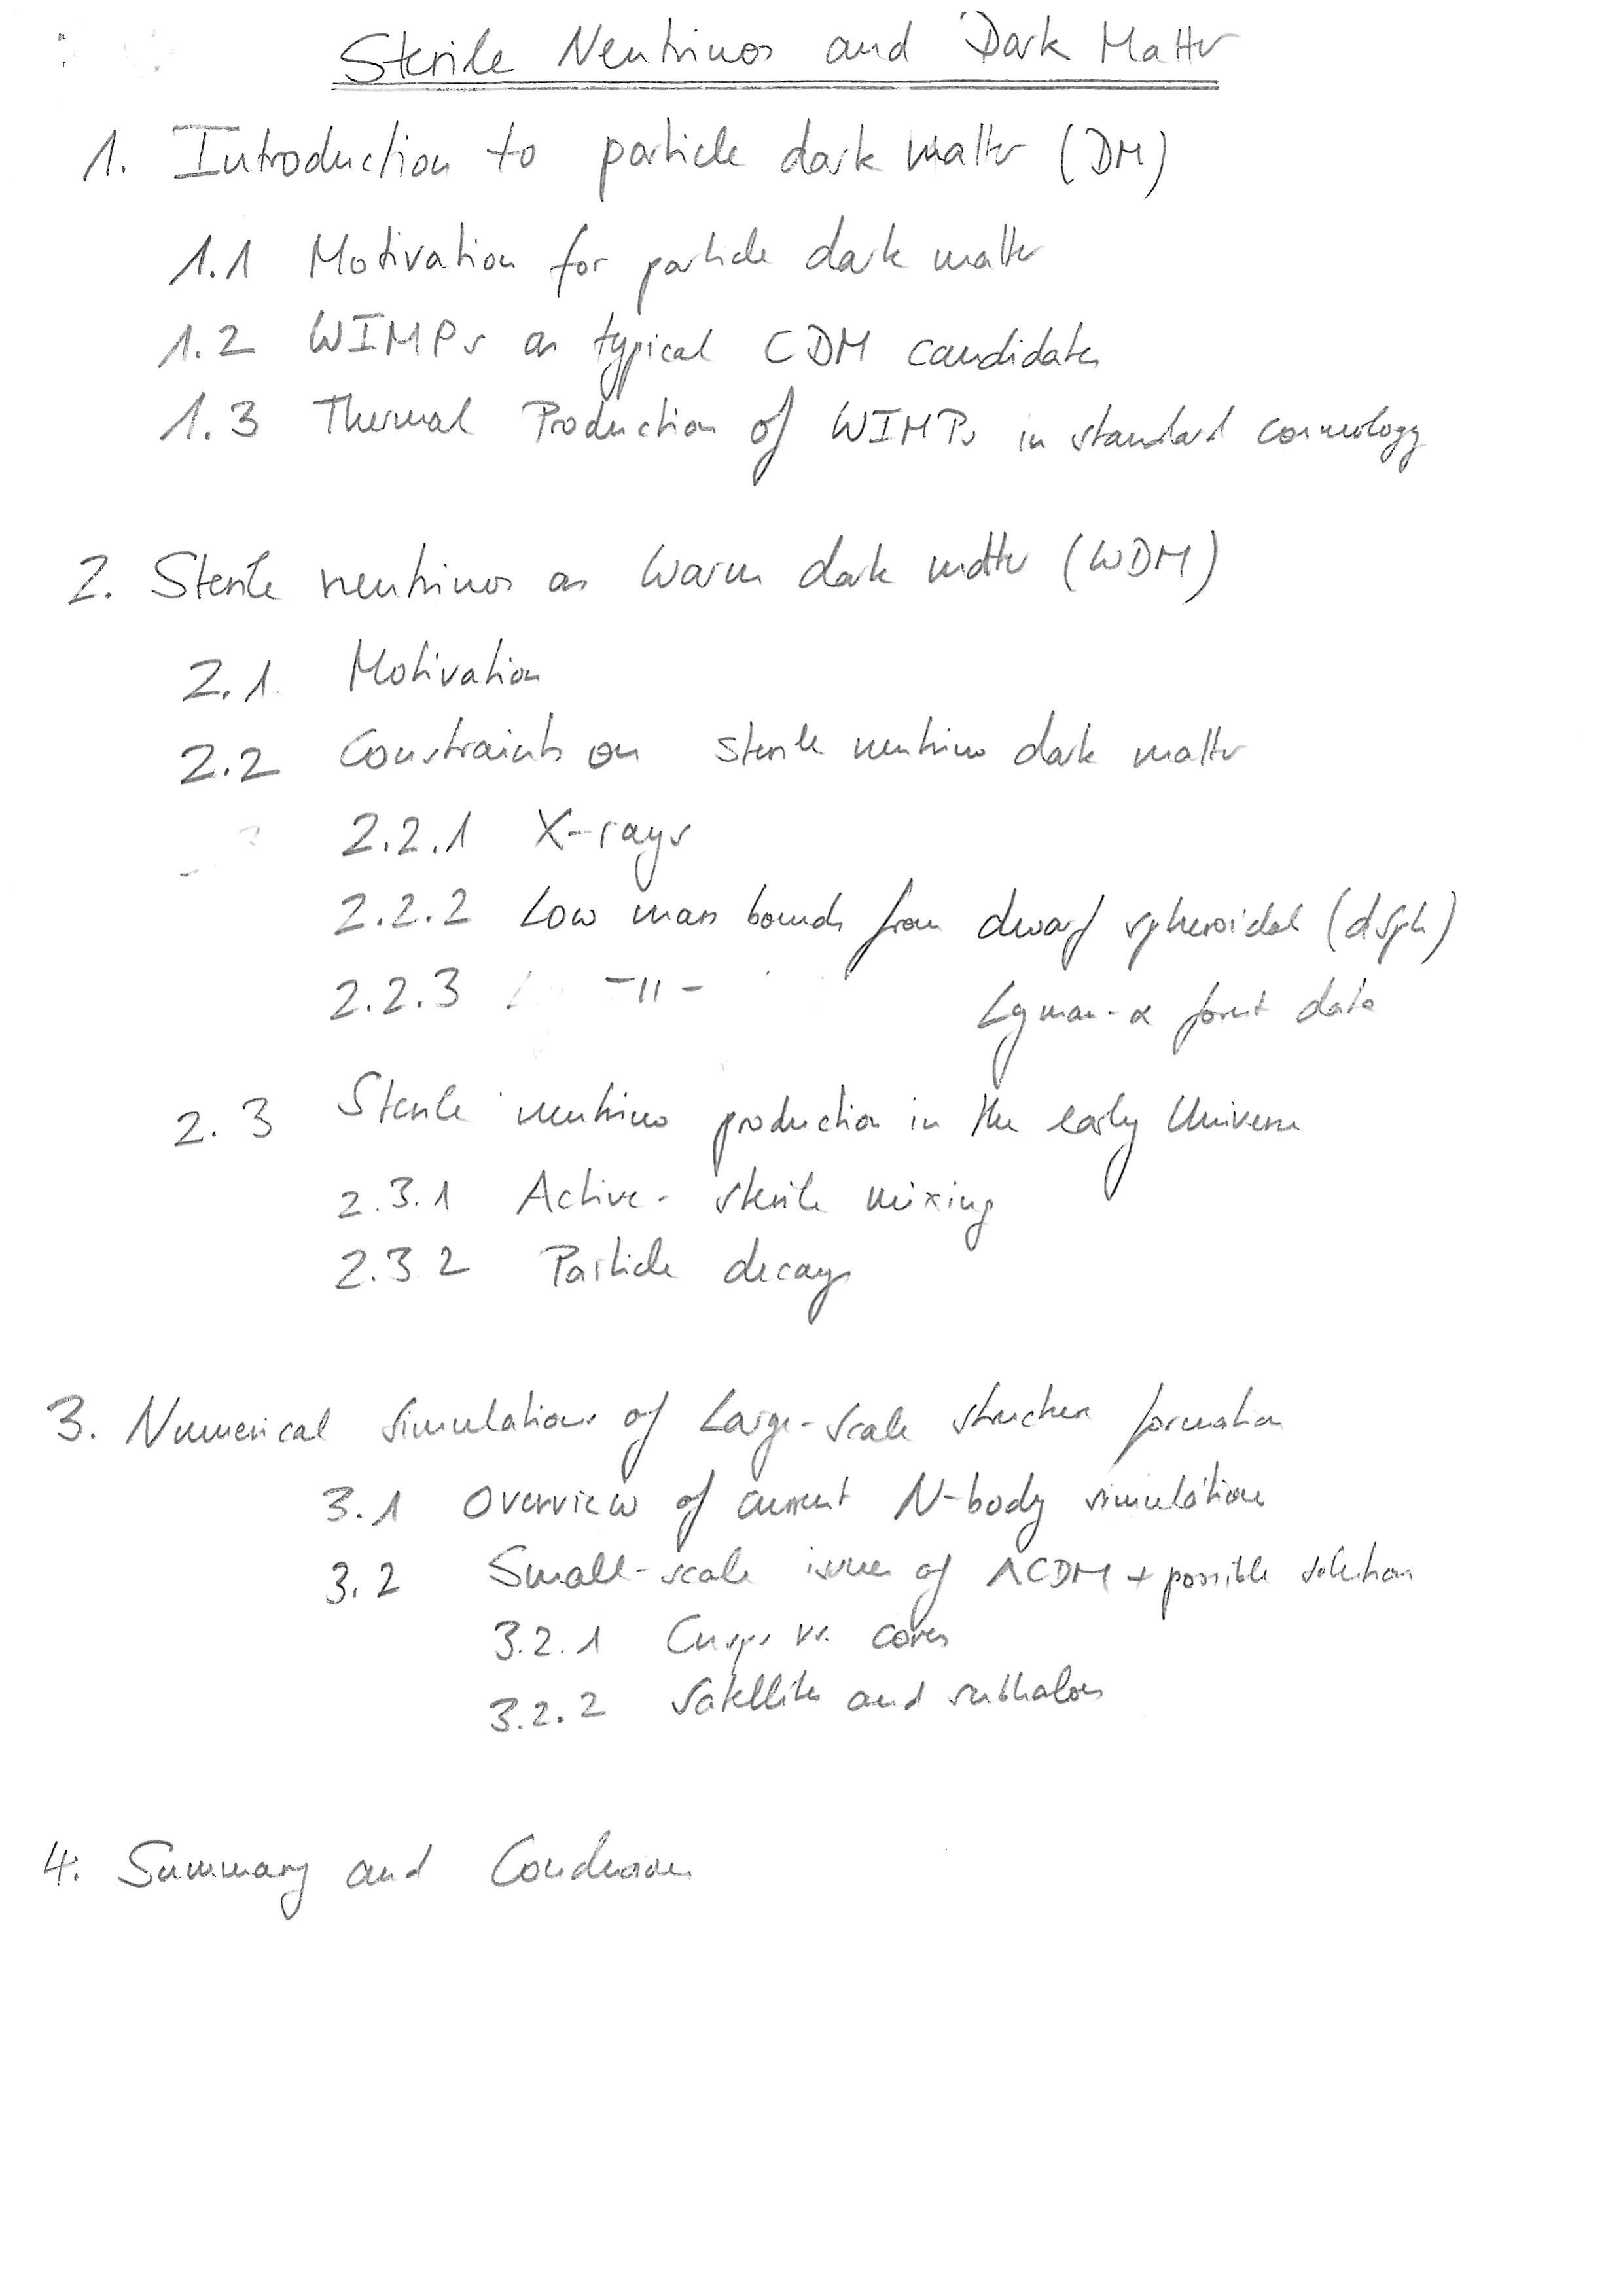 Sterile Neutrinos and Dark Matter
1. Introduction to particle dark matter (DM)
1.1 Motivation for particle dark matter
1.2 WIMPs as typical CDM candidates
1.3 Thermal Production of WIMPs in standard cosmology
2. Sterile neutrinos as Warm dark matter (WDM)
2.1. Motivation
2.2 Constraints on sterile neutrino dark matter
2.2.1 X-rays
2.2.2 Low mass bounds from dwarf spheroidal (dSph)
2.2.3 -"- Lyman-α forest data
2.3 Sterile neutrino production in the early Universe
2.3.1 Active-sterile mixing
2.3.2 Particle decays
3. Numerical simulations of Large-scale structure formation
3.1 Overview of current N-body simulations
3.2 Small-scale issues of ΛCDM + possible solutions
3.2.1 Cusps vs. cores
3.2.2 Satellites and subhalos
4. Summary and Conclusions